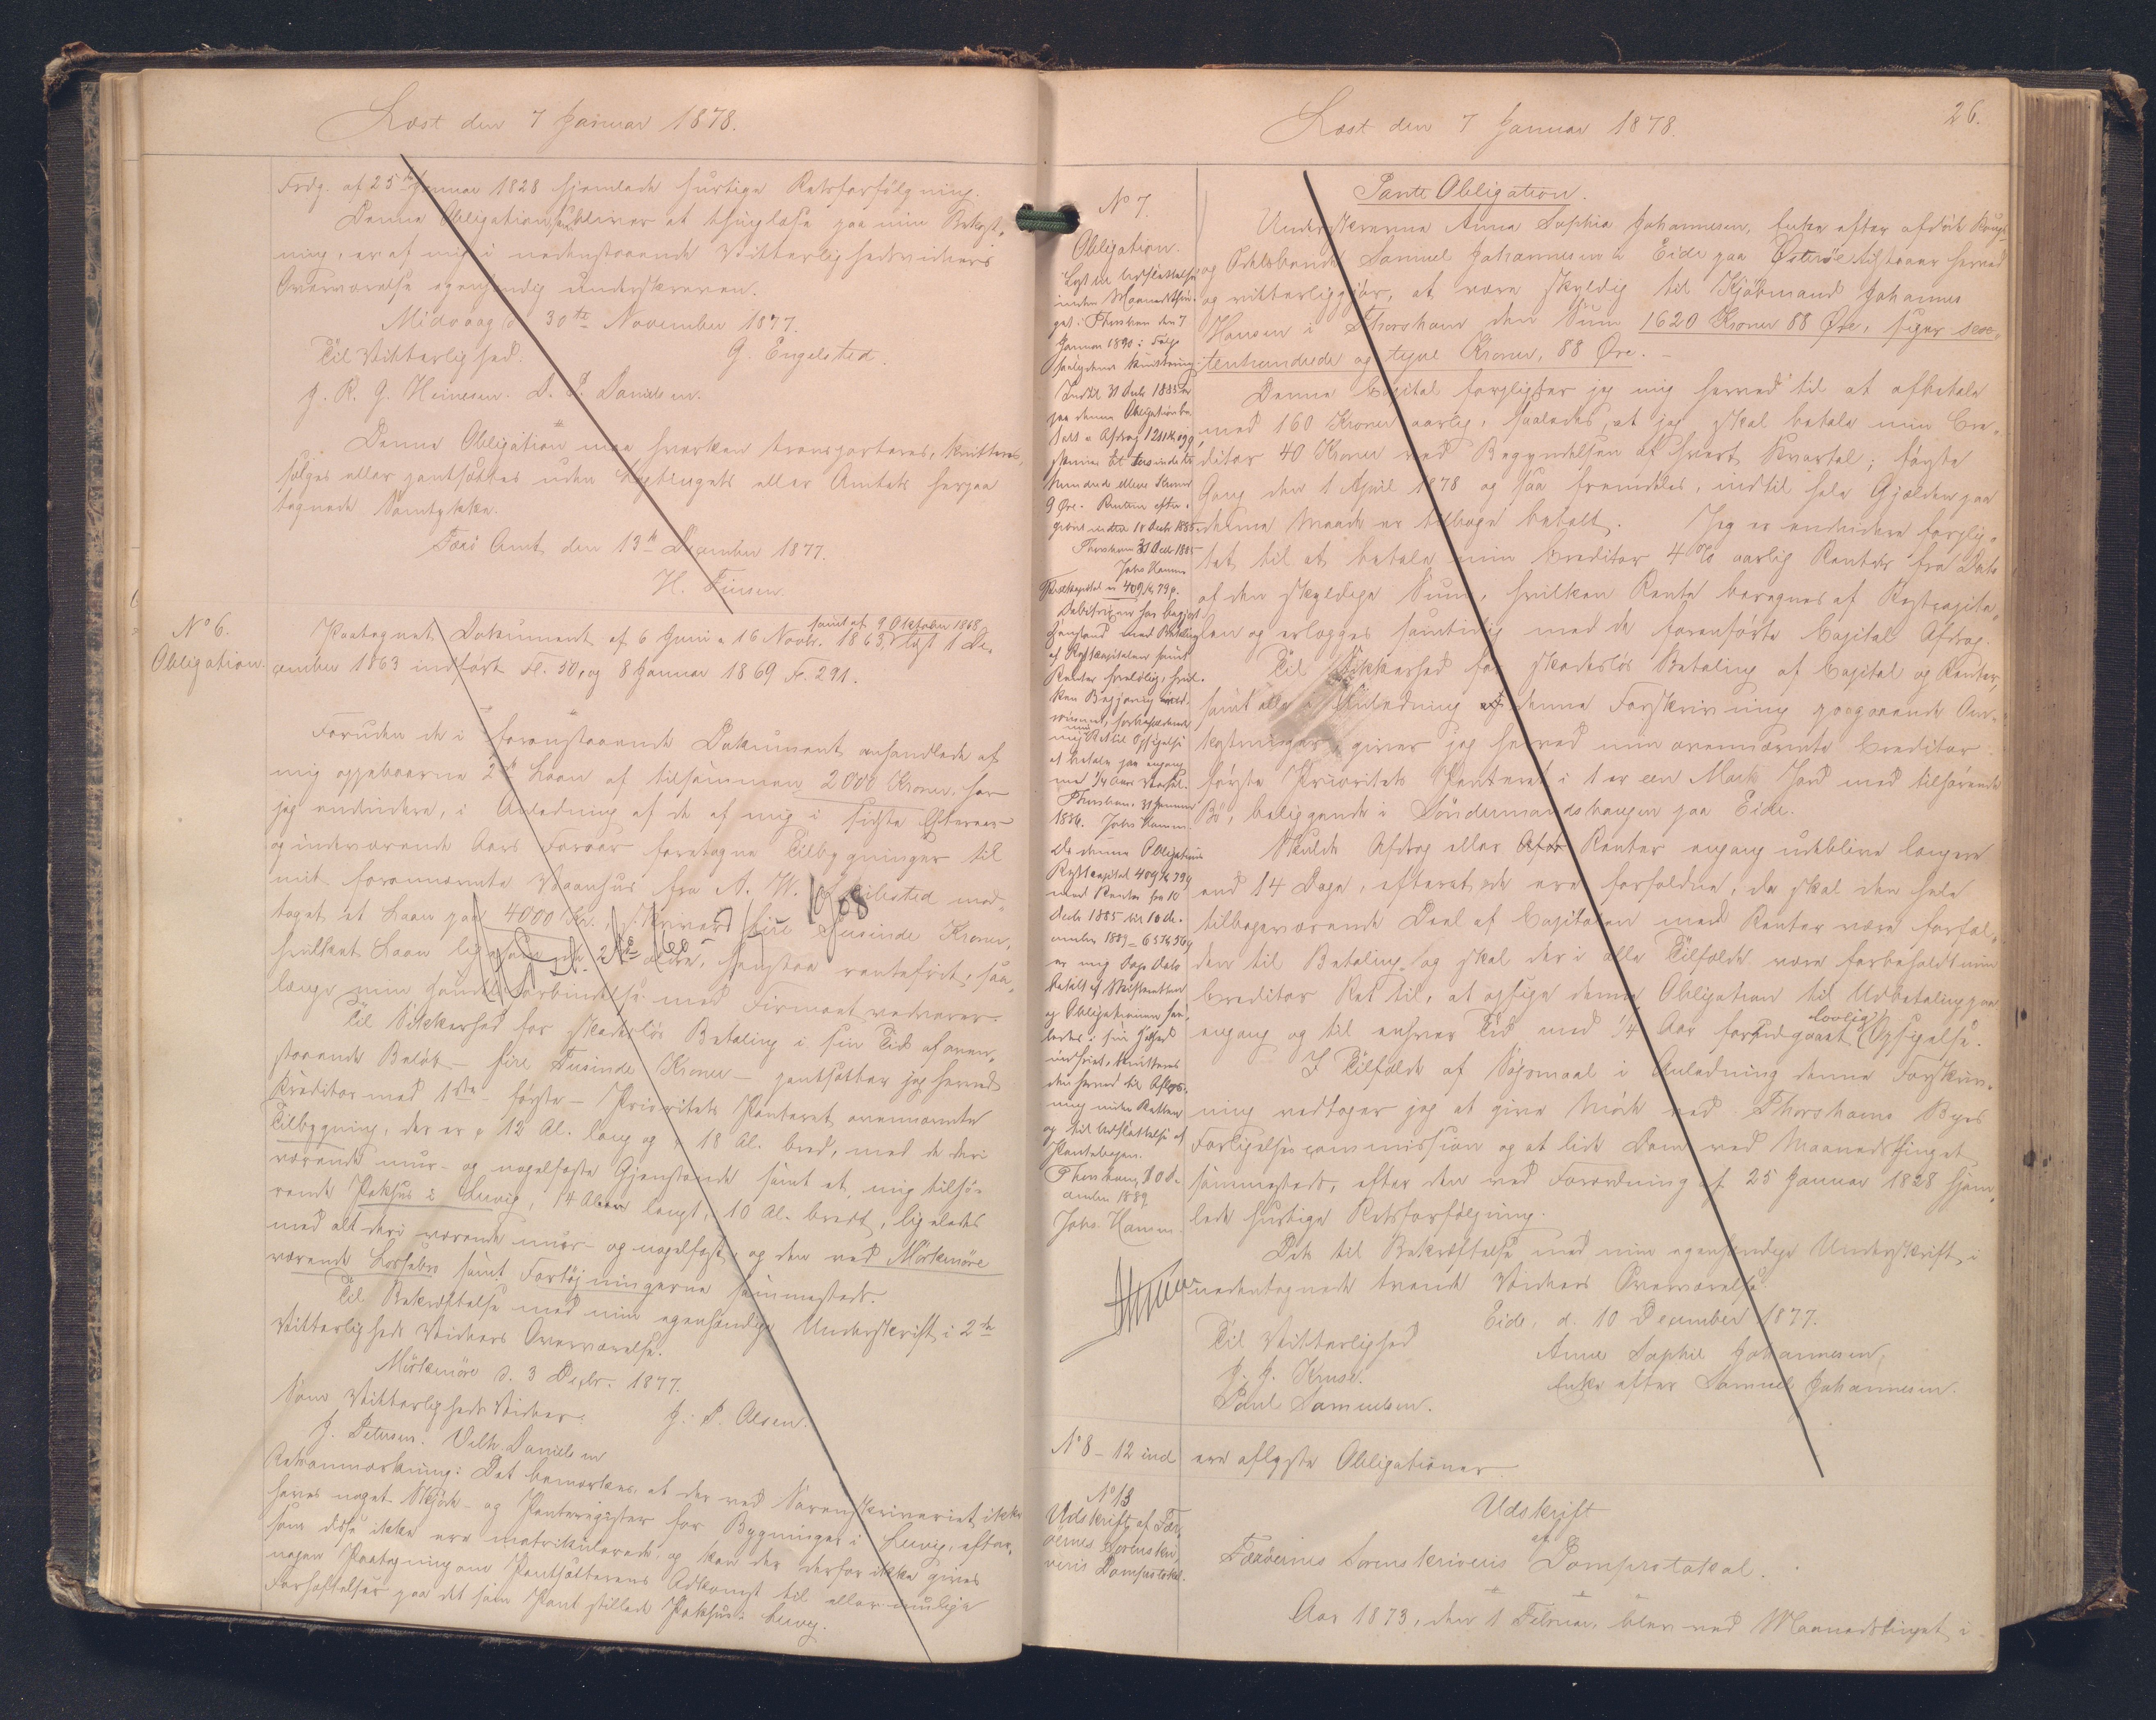 Læst den 7 Januar 1878.
Frdg. af 25de Januar 1828 hjemlede hurtige Retsforfølgning.
Denne Obligation, som bliver at thinglæse paa min Bekost-
ning, er af mig i nedenstaaende Vitterlighedsvidners
Overværelse egenhændig underskreven.
Midvaag d. 30te November 1877.
Til Vitterlighed. G. Engelsted.
J. R. G. Heinesen. D. P. Danielsen.
Denne Obligation maa hverken transporteres, kvitteres,
sælges eller pantsættes uden Lagtingets eller Amtets herpaa
tegnede Samtykke.
Færø Amt den 13de December 1877.
H. Finsen.
No 6.
Obligation.
Paategnet Dokument af 6 Juni & 16 Novbr. 1863, samt af 9 Oktober 1868 læst 1 De-
cember 1863 indført Fl. 50, og 8 Januar 1869 Fl. 291.
Foruden de i foranstaaende Dokument omhandlede af
mig oppebaarne 2de Laan af tilsammen 2000 Kroner, har
jeg endvidere, i Anledning af de af mig i sidste Efteraar
og indeværende Aars Foraar foretagne Tilbygninger til
mit forannævnte Vaanhus fra A. W. mod-
taget et Laan paa 4000 Kr., skriver fire Tusinde Kroner,
hvilket Laan ligesom de 2de ældre, henstaa rentefrit, saa-
længe min Handelsforbindelse med Firmaet vedvarer.
Til Sikkerhed for skadesløs Betaling i sin Tid af oven-
staaende Beløb – fire Tusinde Kroner – pantsætter jeg herved
Kreditor med 1ste – første – Prioritets Panteret ovennævnte
Tilbygning, der er 12 Al. lang og 18 Al. bred, med de deri
værende mur- og nagelfaste Gjenstande samt et mig tilhø-
rende Pakhus i Leervig, 14 Alen langt, 10 Al. bredt, ligeledes
med alt deri værende mur- og nagelfast, og den ved Mörkmöre
værende Lossebro samt Fortøjningerne sammesteds.
Til Bekræftelse med min egenhændige Underskrift i 2de
Vitterligheds Vidners Overværelse.
Mörkmöre d. 3 Decbr. 1877.
Som Vitterligheds Vidner: J. P. Olsen.
J. Petersen. Vilh. Danielsen
Retsanmærkning: Det bemærkes, at der ved Sorenskriveriet ikke
haves noget Skjøde- og Panteregister for Bygninger i Leervig, efter-
som disse ikke ere matrikulerede, og kan der derfor ikke gives
nogen Paategning om Pantsætterens Adkomst til eller mulige
Forhæftelser paa det som Pant stillede Pakhus i Leervig.
Læst den 7 Januar 1878.
26.
No 7.
Obligation.
Læst til Udslettelse
inden Maanedsthin-
get i Thorshavn den 7
Januar 1890 i Følge
saalydende Kvittering:
Indtil 31 Decb 1885 er
paa denne Obligation be-
talt i Afdrag 1211 Kr. 9 Ø.
skriver Et tusinde to
hundrede elleve Kroner
9 Øre.
Thorshavn 31 Decb 1885
Johs Hansen
Restkapital er 409 Kr. 79 Ø.
Debitricen har begjært
Henstand med Betaling
af Restkapitalen samt
Renter foreløbig, hvil-
ken Begjæring
mig Ret til Opsigelse
at betale paa engang
med 1/4 Aars Varsel.
Thorshavn 31 Januar
1886. Johs Hansen.
Da denne Obligations
Restkapital 409 Kr 79 Ø
med Renter fra 10
Decb 1885 til 10 De-
cember 1889
er mig Dags Dato
betalt af
og Obligationen saa-
ledes i sin Helhed
indfriet, kvitteres
den herved til Aflys-
ning inden Retten
og til Udslettelse af
Pantebogen.
Thorshavn, 10 De-
cember 1889.
Johs. Hansen.
Pante Obligation.
Undertegnede Anna Sophia Johannesen, Enke efter afdøde Kongs-
og Odelsbonde Samuel Johannesen i Eide paa Österöe tilstaaer herved
og vitterliggjør, at være skyldig til Kjöbmand Johannes
Hansen i Thorshavn den Sum 1620 Kroner 88 Øre, siger sex-
tenhundrede og tyve Kroner, 88 Øre. –
Denne Capital forpligter jeg mig herved til at afbetale
med 160 Kroner aarlig, saaledes, at jeg skal betale min Cre-
ditor 40 Kroner ved Begyndelsen af hvert Kvartal; første
Gang den 1 April 1878 og saa fremdeles, indtil hele Gjælden paa
denne Maade er tilbage betalt. Jeg er endvidere forplig-
tet til at betale min Creditor 4 % aarlig Renter fra Dato
af den skyldige Sum, hvilken Rente beregnes af Restcapita-
len og erlægges samtidig med de forenførte Capital Afdrag.
Til Sikkerhed for skadesløs Betaling af Capital og Renter,
samt alle i Anledning af denne Forskrivning paagaaende Om-
kostninger, giver jeg herved min ovennævnte Creditor
første Prioritets Panteret i 1 er een Mark Jord med tilhørende
Bö, beliggende i Söndermandshaugen paa Eide.
Skulde Afdrag eller Renter engang udeblive længere
end 14 Dage, efterat de ere forfaldne, da skal den hele
tilbageværende Deel af Capitalen med Renter være forfal-
den til Betaling og skal der i alle Tilfælde være forbeholdt min
Creditor Ret til, at opsige denne Obligation til Udbetaling paa
engang og til enhver Tid med 1/4 Aar forudgaaet lovlig Opsigelse.
I Tilfælde af Søgsmaal i Anledning denne Forskriv-
ning vedtager jeg at give Møde ved Thorshavns Byes
Forligelsescommission og at lide Dom ved Maanedsthinget
sammesteds, efter den ved Forordning af 25 Januar 1828 hjem-
lede hurtige Retsforfølgning.
Dette til Bekræftelse med min egenhændige Underskrift i
undertegnede tvende Vidners Overværelse.
Eide, d. 10 December 1877.
Til Vitterlighed Anne Sophie Johannesen,
J. J. Kruse. Enke efter Samuel Johannesen.
Paul Samuelsen.
No 8 – 12 incl ere aflyste Obligationer
No 13
Udskrift af Fær-
öernes Sorenskri-
veris Domprotokol.
Udskrift
af
Færöernes Sorenskriveris Domprotokol.
Aar 1873, den 1 Februar, blev ved Maanedstinget i